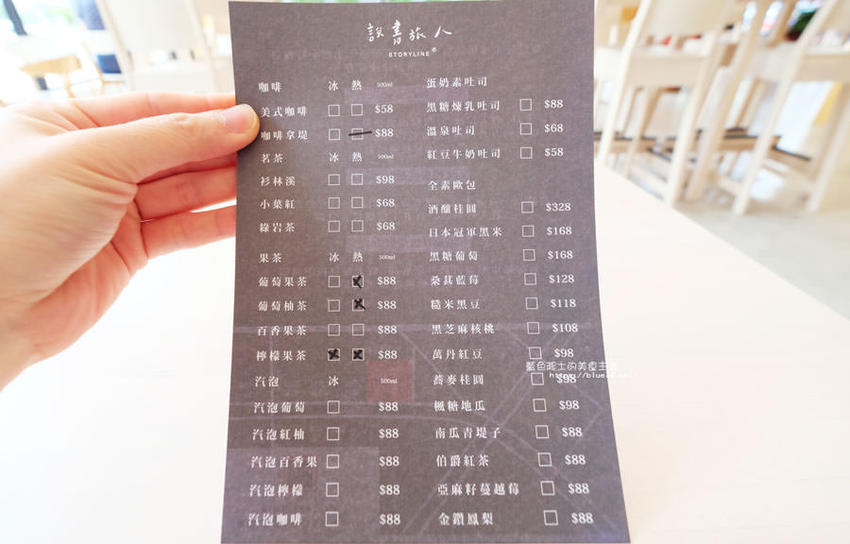 說書旅人
STORYLINE®
咖啡 冰 熱 500ml
美式咖啡 $58
咖啡拿堤 $88
茗茶 冰 熱 500ml
衫林溪 $98
小葉紅 $68
綠岩茶 $68
果茶 冰 熱 500ml
葡萄果茶 $88
葡萄柚茶 $88
百香果茶 $88
檸檬果茶 $88
汽泡 冰 500ml
汽泡葡萄 $88
汽泡紅柚 $88
汽泡百香果 $88
汽泡檸檬 $88
汽泡咖啡 $88
蛋奶素吐司
黑糖煉乳吐司 $88
溫泉吐司 $68
紅豆牛奶吐司 $58
全素歐包
酒釀桂圓 $328
日本冠軍黑米 $168
黑糖葡萄 $168
桑葚藍莓 $128
糙米黑豆 $118
黑芝麻核桃 $108
萬丹紅豆 $98
蕎麥桂圓 $98
楓糖地瓜 $98
南瓜青堤子 $88
伯爵紅茶 $88
亞麻籽蔓越莓 $88
金鑽鳳梨 $88